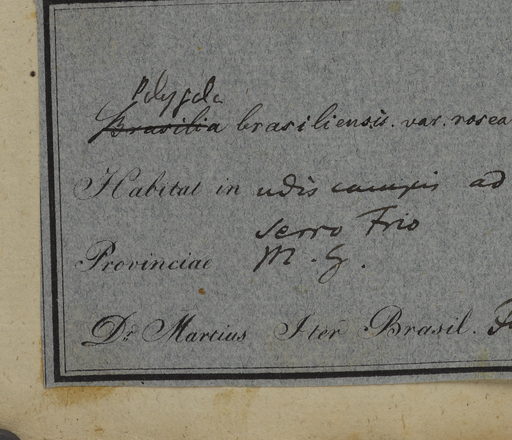 Polygala
Brasilia brasiliensis. var. rosea
Habitat in udis campis ad
Serro Frio
Provinciae M. G.
Dr. Martius Iter Brasil.